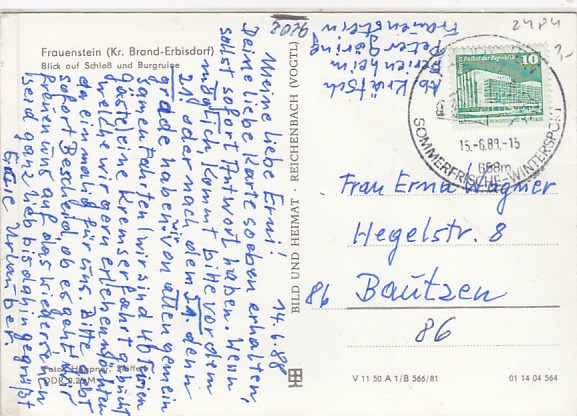 Frauenstein (Kr. Brand-Erbisdorf)
Blick auf Schloß und Burgruine
14.6.88
Meine liebe Erni!
Deine liebe Karte soeben erhalten,
sollst sofort Antwort haben. Wenn
möglich kommt bitte vor dem
21. oder nach dem denn
grade haben wir von allen gemein
samen Fahrten (wir sind 46
Gäste) eine Kremserfahrt gebucht
welche wir gern erleben möchten
da einmalig für uns. Bitte gebt
sofort Bescheid, ob es geht. Wir
freuen uns auf das Wiedersehen
Seid ganz lieb bis dahin gegrüßt
Eure Urlauber
Foto: Höppner, Stolpen
DDR 0,25 M
BILD UND HEIMAT · REICHENBACH (VOGTL)
Ab Krätsch
Ferienheim
Peter Göring
Frauenstein
9202
4842
Palast der Republik
10
15.-6.88.-15
658m
SOMMERFRISCHE-WINTERSPORT
Frau Erna Wagner
Hegelstr. 8
86 Bautzen
86
V 11 50 A 1/B 566/81
01 14 04 564